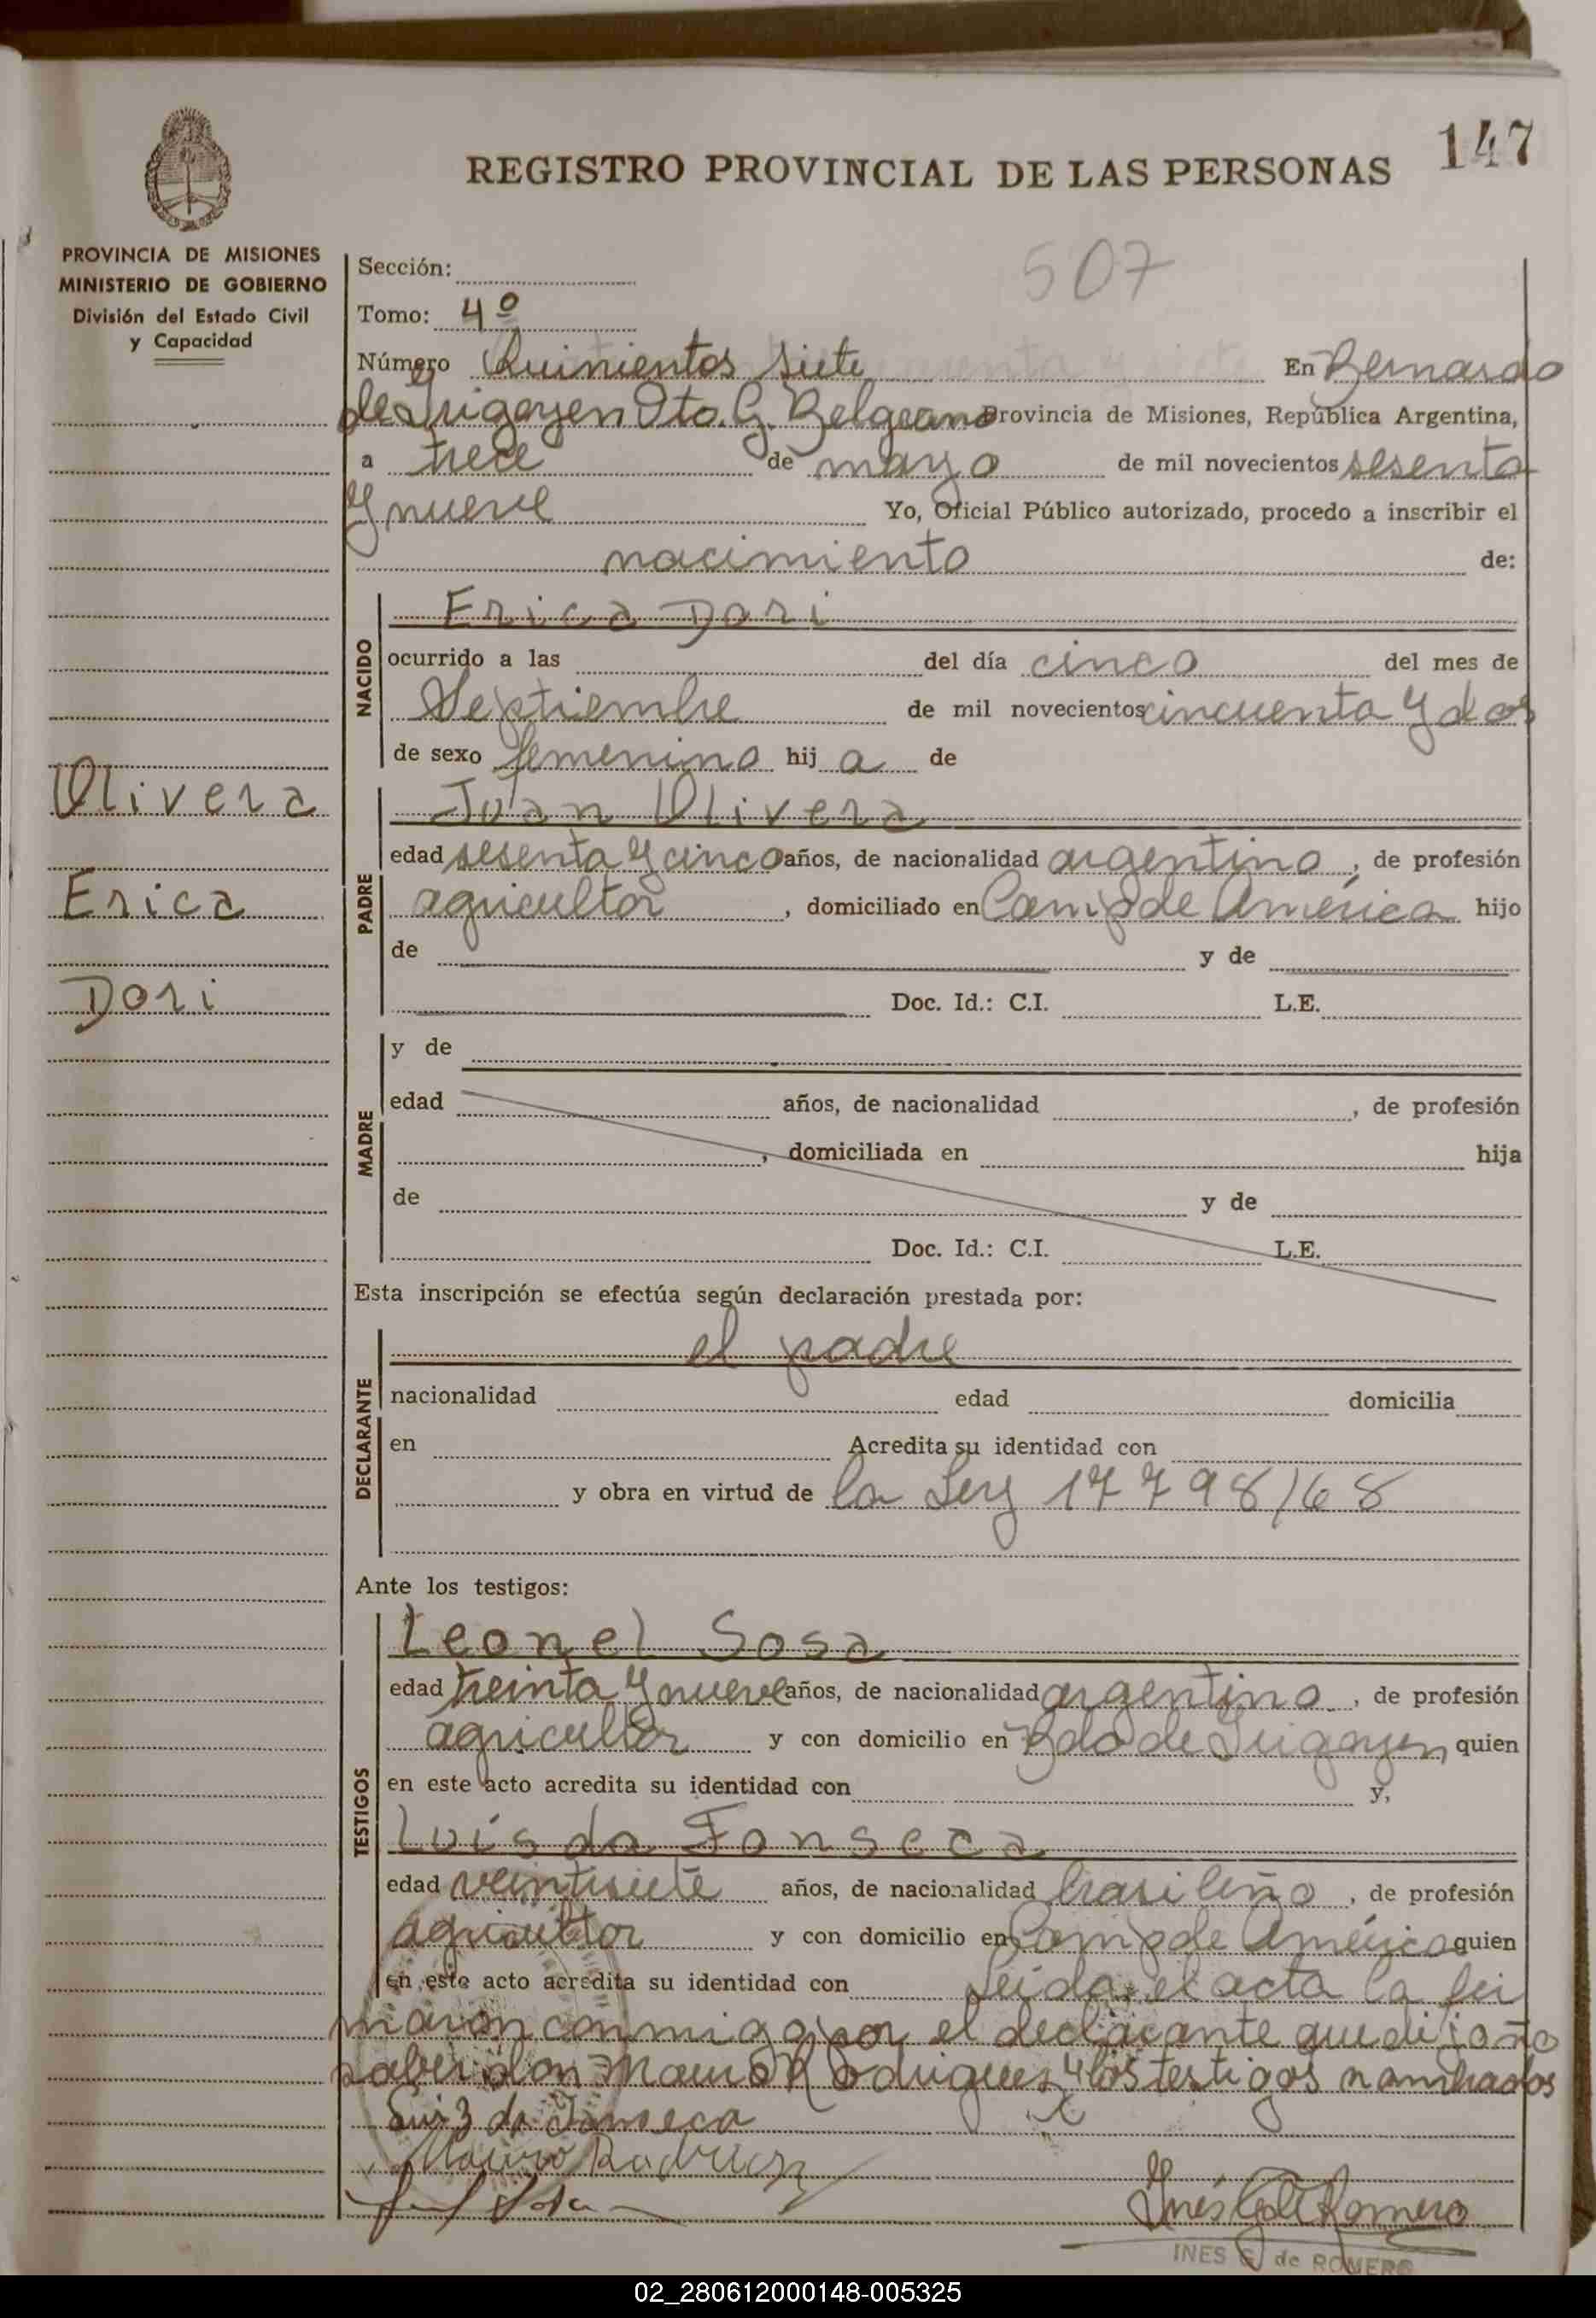 147
REGISTRO PROVINCIAL DE LAS PERSONAS
507
PROVINCIA DE MISIONES
MINISTERIO DE GOBIERNO
División del Estado Civil
y Capacidad
Sección:
Tomo: 4º
Número Quinientos siete En Bernardo
de Irigoyen Dto. G. Belgrano Provincia de Misiones, República Argentina,
a trece de mayo de mil novecientos sesenta
y nueve Yo, Oficial Público autorizado, procedo a inscribir el
nacimiento de:
NACIDO
Erica Dori
ocurrido a las del día cinco del mes de
Septiembre de mil novecientos cincuenta y dos
de sexo femenino hij a de
Olivera
Erica
Dori
PADRE
Juan Olivera
edad sesenta y cinco años, de nacionalidad argentino, de profesión
agricultor, domiciliado en Campo de América hijo
de y de
Doc. Id.: C.I. L.E.
MADRE
y de
edad años, de nacionalidad , de profesión
, domiciliada en hija
de y de
Doc. Id.: C.I. L.E.
Esta inscripción se efectúa según declaración prestada por:
DECLARANTE
el padre
nacionalidad edad domicilia
en Acredita su identidad con
y obra en virtud de la Ley 17798/68
Ante los testigos:
TESTIGOS
Leonel Sosa
edad treinta y nueve años, de nacionalidad argentino, de profesión
agricultor y con domicilio en Bdo de Irigoyen, quien
en este acto acredita su identidad con y,
Luis da Fonseca
edad veintisiete años, de nacionalidad brasileño, de profesión
agricultor y con domicilio en Campo de América quien
en este acto acredita su identidad con Leida el acta la fir
maron conmigo por el declarante que dijo no
saber don Mauro Rodriguez y los testigos nombrados
Luiz da Fonseca
Mauro Rodriguez
Sosa
Inés G de Romero
INES G de ROMERO
02_280612000148-005325